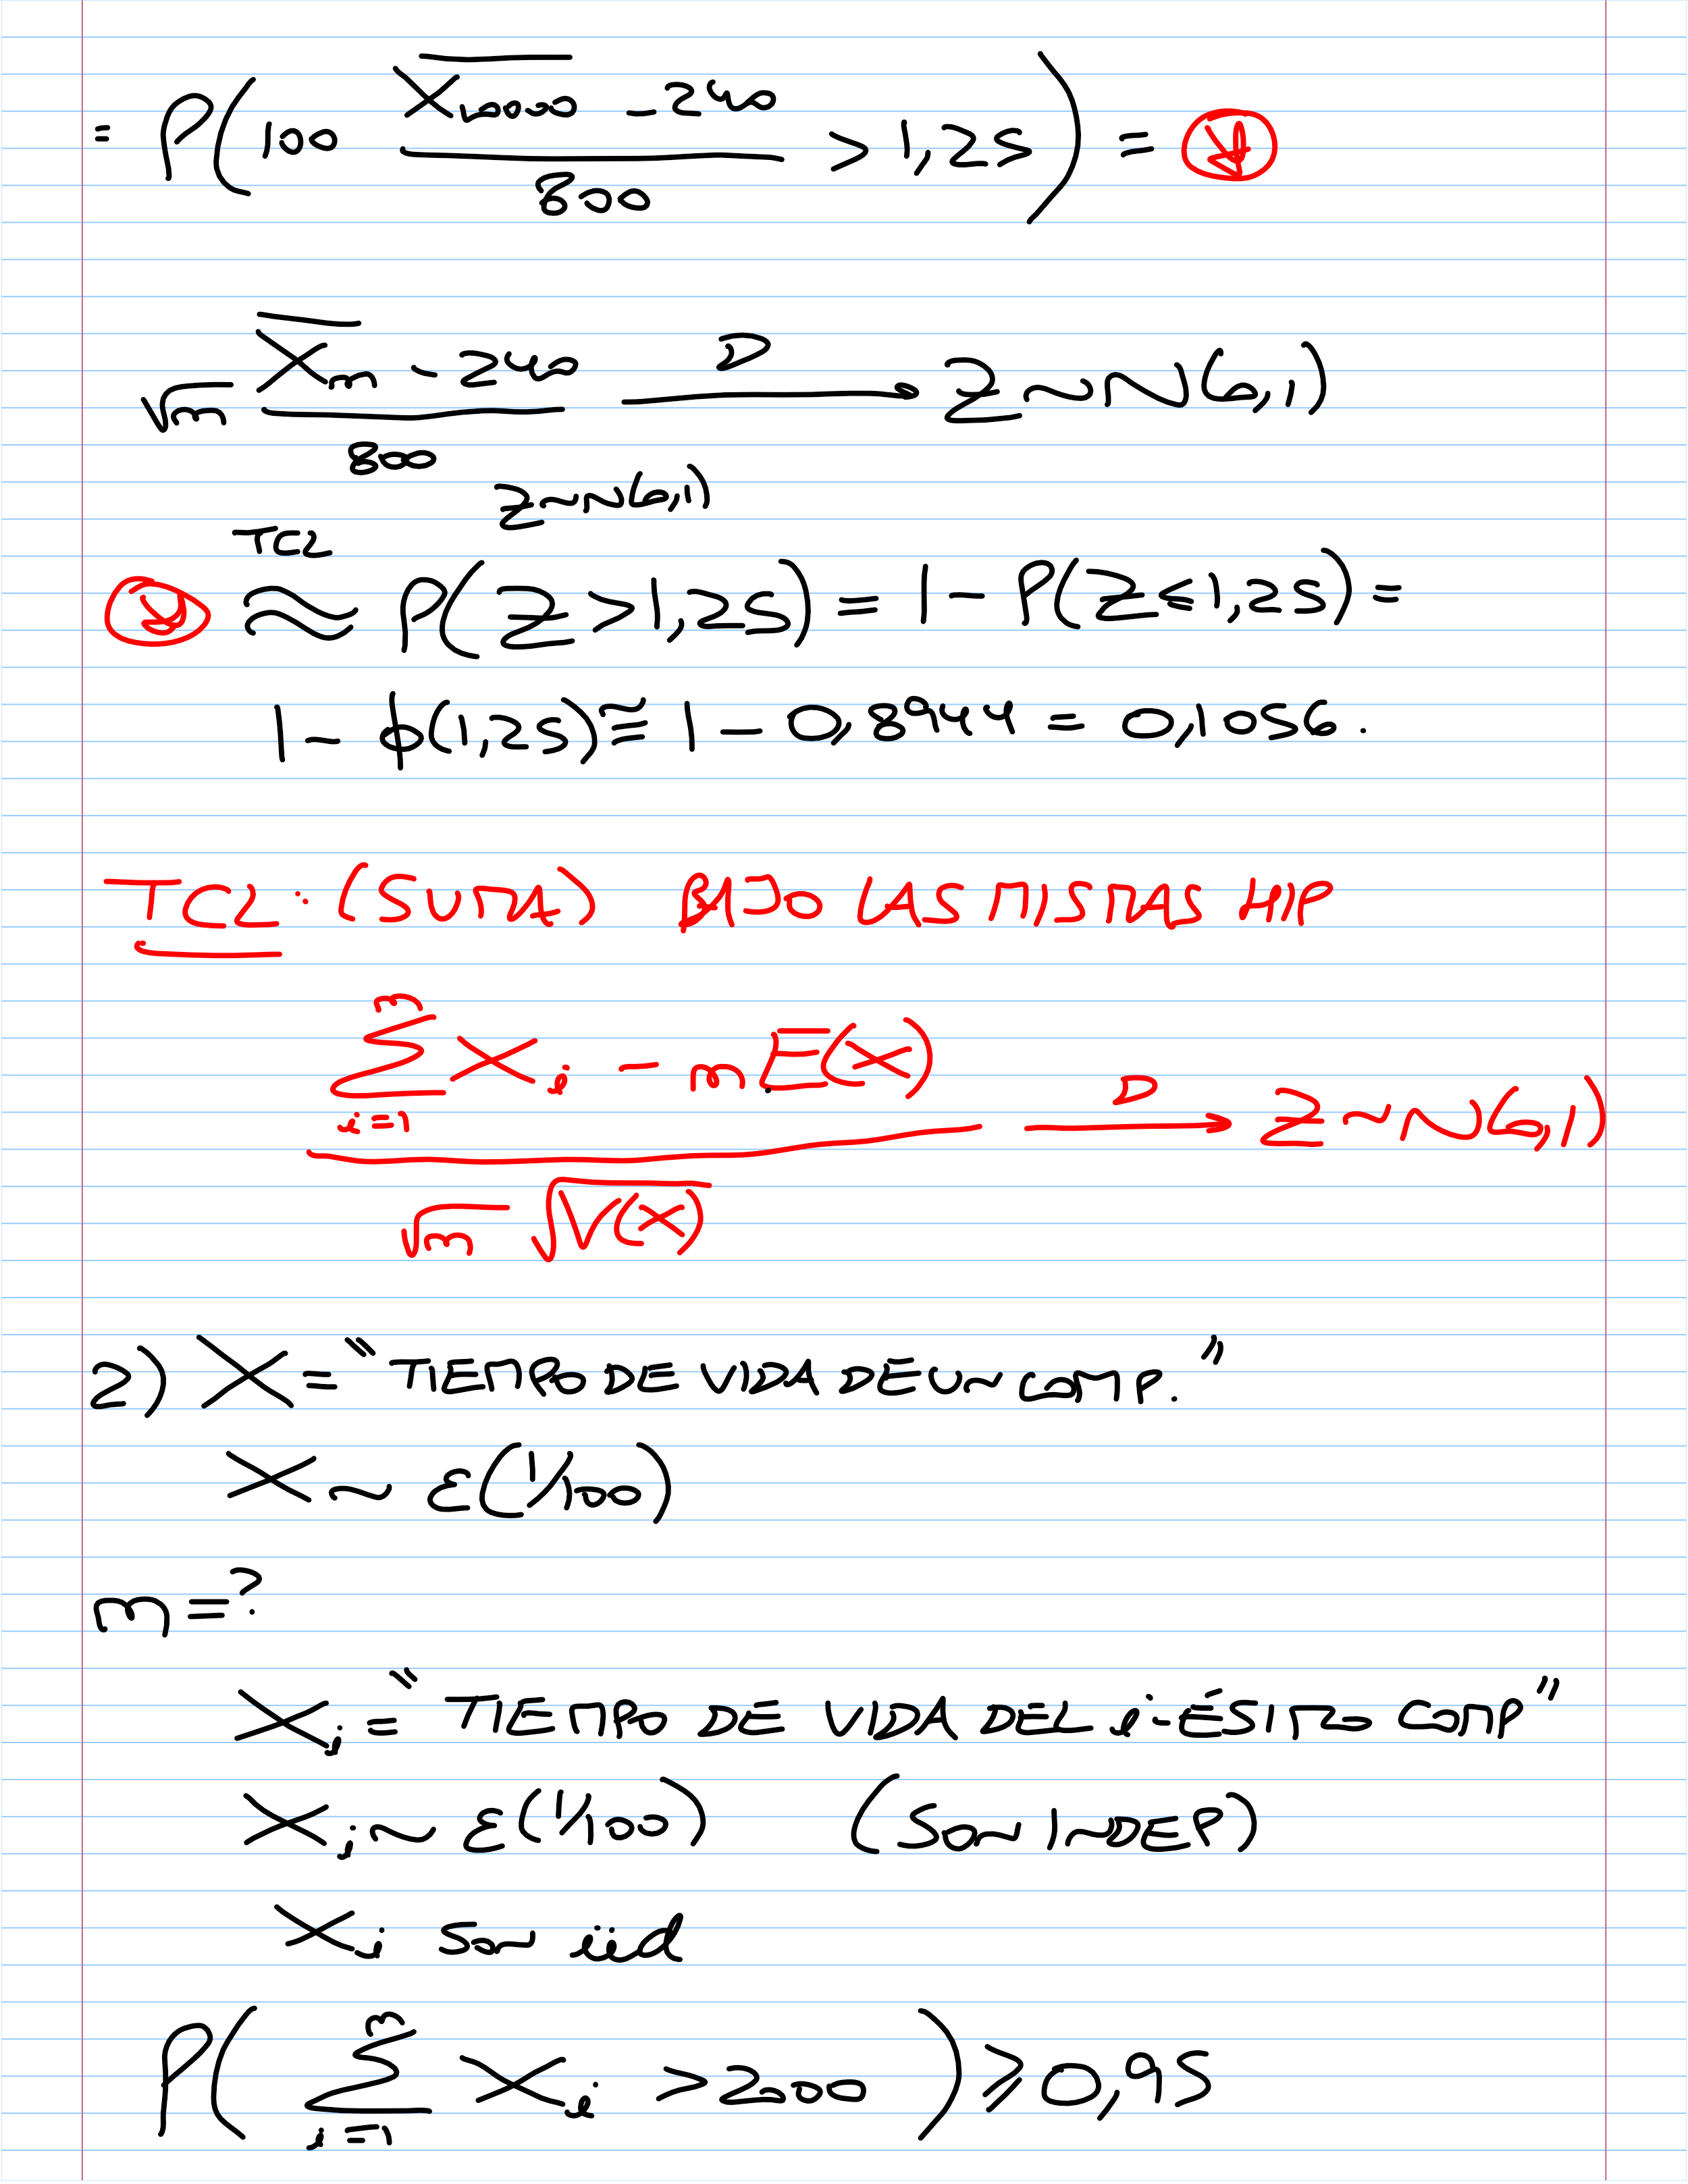 = P( 100 (X̄₁₀₀₀₀ - 240)/800 > 1,25 ) =
√n (X̄n - 240)/800 →ᴰ Z ~ N(0,1)
Z ~ N(0,1)
TCL
≈ P(Z > 1,25) = 1 - P(Z ≤ 1,25) =
1 - φ(1,25) ≅ 1 - 0,8944 = 0,1056.
TCL: (SUMA) BAJO LAS MISMAS HIP
(∑ᵢ₌₁ⁿ Xi - n E(X)) / (√n √V(X)) →ᴰ Z ~ N(0,1)
2) X = "TIEMPO DE VIDA DE UN COMP."
X ~ ε(1/100)
n = ?
Xi = "TIEMPO DE VIDA DEL i-ÉSIMO COMP"
Xi ~ ε(1/100) (SON INDEP)
Xi son iid
P( ∑ᵢ₌₁ⁿ Xi > 2000 ) ≥ 0,95